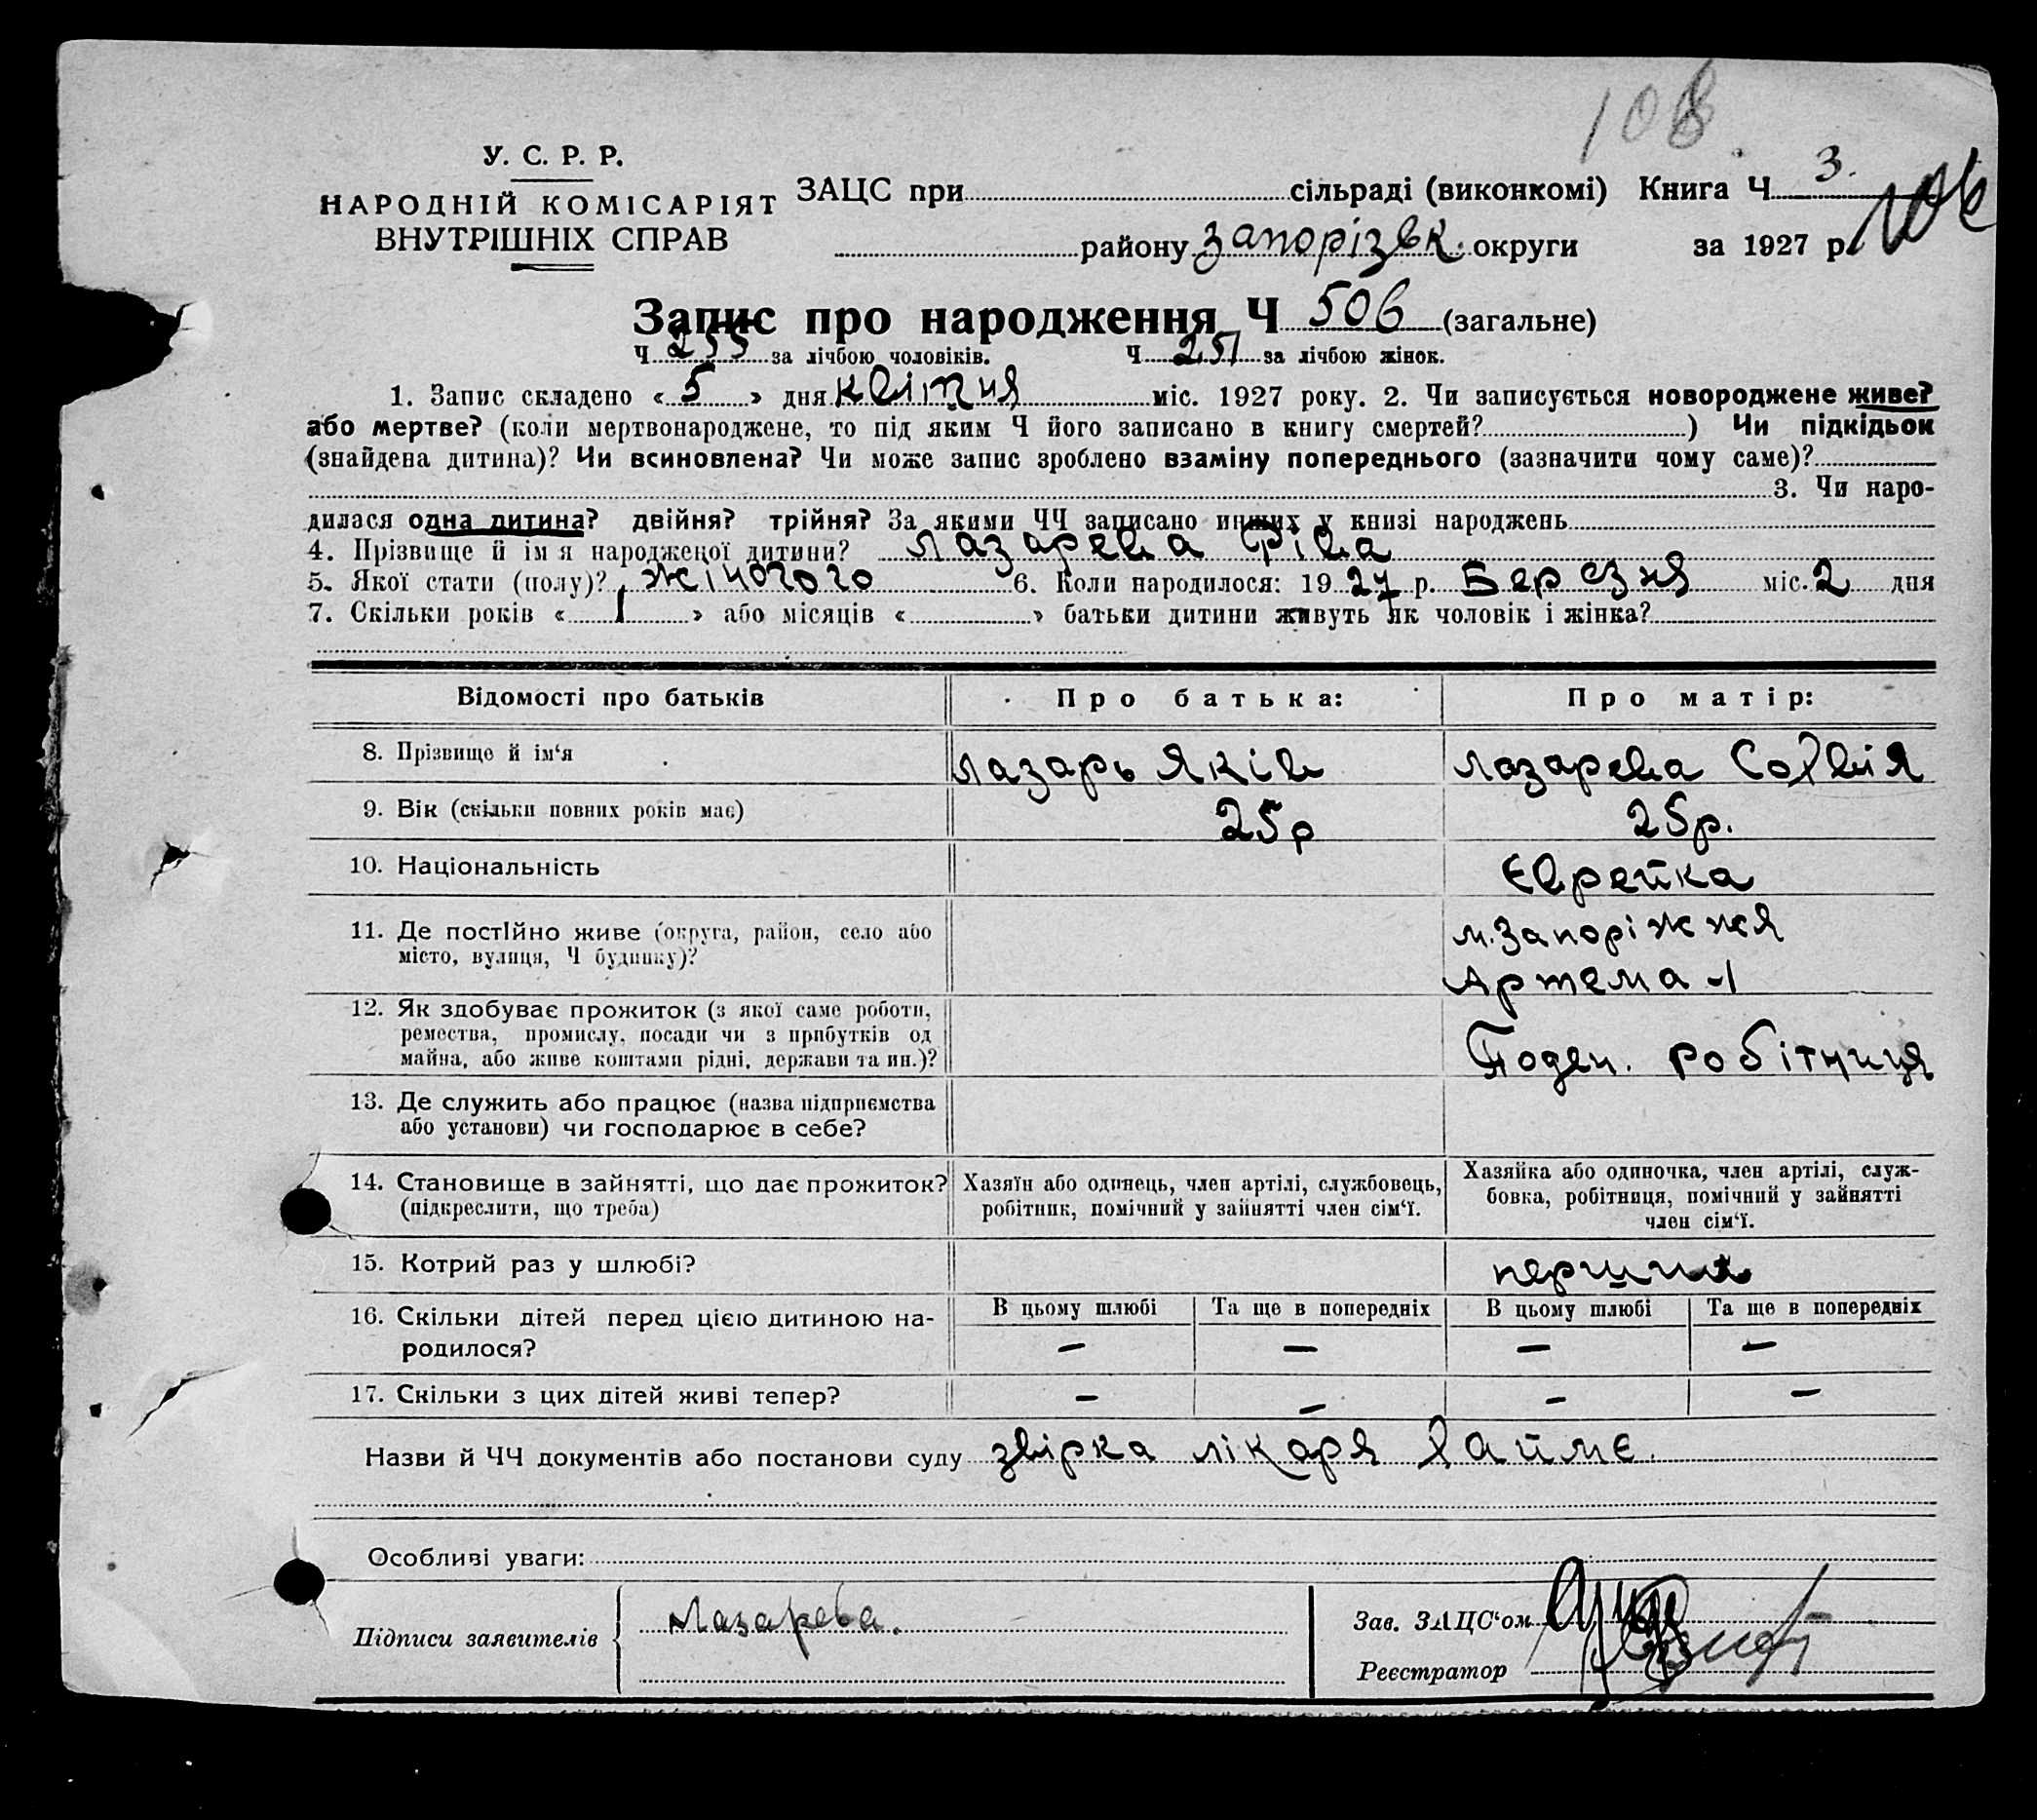 108
У. С. Р. Р.
НАРОДНІЙ КОМІСАРІЯТ
ВНУТРІШНІХ СПРАВ
ЗАЦС при сільраді (виконкомі) Книга Ч 3.
району Запорізьк. округи за 1927 р.
Запис про народження Ч 506 (загальне)
Ч 255 за лічбою чоловіків. Ч 251 за лічбою жінок.
1. Запис складено « 5 » дня квітня міс. 1927 року. 2. Чи записується новороджене живе?
або мертве? (коли мертвонароджене, то під яким Ч його записано в книгу смертей? ) Чи підкідьок
(знайдена дитина)? Чи всиновлена? Чи може запис зроблено взаміну попереднього (зазначити чому саме)?
3. Чи наро-
дилася одна дитина? двійня? трійня? За якими ЧЧ записано инших у книзі народжень
4. Прізвище й ім'я народженої дитини? Лазарева Ріва
5. Якої стати (полу)? жіночого 6. Коли народилося: 1927 р. Березня міс. 2 дня
7. Скільки років « 1 » або місяців « » батьки дитини живуть як чоловік і жінка?
Відомості про батьків Про батька: Про матір:
8. Прізвище й ім'я Лазарь Яків Лазарева Софія
9. Вік (скільки повних років має) 25р 25р.
10. Національність Єврейка
11. Де постійно живе (округа, район, село або
місто, вулиця, Ч будинку)?
м. Запоріжжя
Артема 1
12. Як здобуває прожиток (з якої саме роботи,
ремества, промислу, посади чи з прибутків од
майна, або живе коштами рідні, держави та ин.)?
Поден. робітниця
13. Де служить або працює (назва підприємства
або установи) чи господарює в себе?
14. Становище в зайнятті, що дає прожиток?
(підкреслити, що треба)
Хазяїн або одинець, член артілі, службовець,
робітник, помічний у зайнятті член сім'ї.
Хазяйка або одиночка, член артілі, служ-
бовка, робітниця, помічний у зайнятті
член сім'ї.
15. Котрий раз у шлюбі? перший
16. Скільки дітей перед цією дитиною на-
родилося?
В цьому шлюбі Та ще в попередніх В цьому шлюбі Та ще в попередніх
— — — —
17. Скільки з цих дітей живі тепер? — — — —
Назви й ЧЧ документів або постанови суду звірка лікаря
Особливі уваги:
Підписи заявителів Лазарева.
Зав. ЗАЦС'ом
Реєстратор